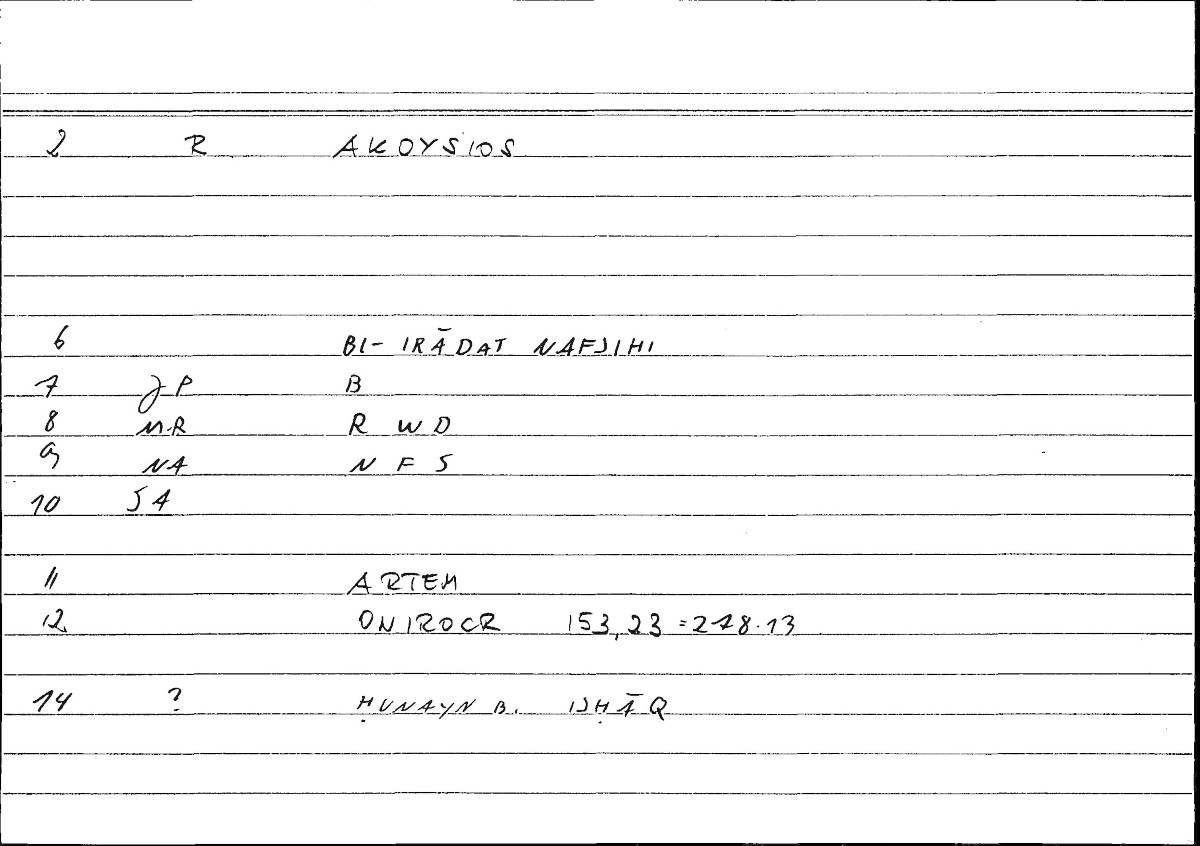 2 R AKOYSIOS
6 BI- IRĀDAT NAFSIHI
7 JP B
8 MR R W D
9 NA N F S
10 SA
11 ARTEM
12 ONIROCR 153,23 = 278.13
14 ? ḤUNAYN B. ISḤĀQ